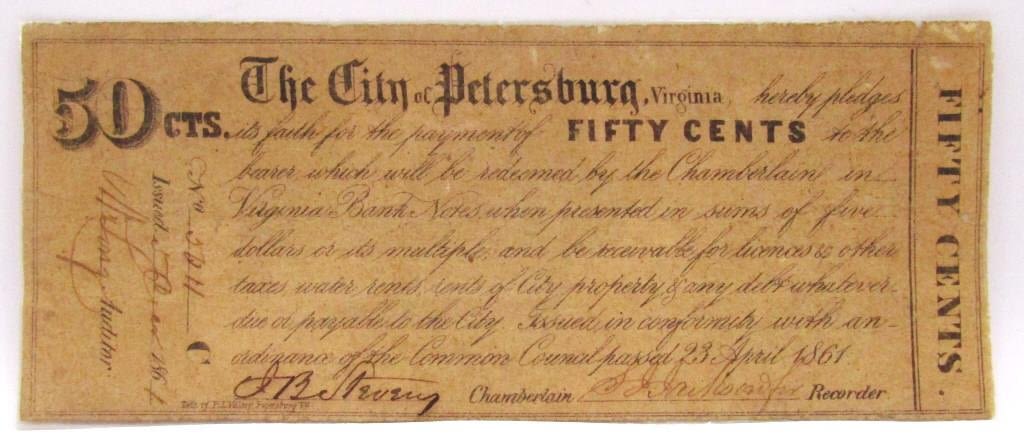 50 CTS.
The City of Petersburg, Virginia, hereby pledges
its faith for the payment of FIFTY CENTS to the
bearer, which will be redeemed by the Chamberlain in
Virginia Bank Notes, when presented in sums of five
dollars or its multiple, and be receivable for licences & other
taxes water rents, rents of City property & any debt whatever
due or payable to the City. Issued in conformity with an
ordinance of the Common Council passed 23 April 1861
J B Stevens Chamberlain Recorder
No
C
Issued 1861
Auditor.
FIFTY CENTS.